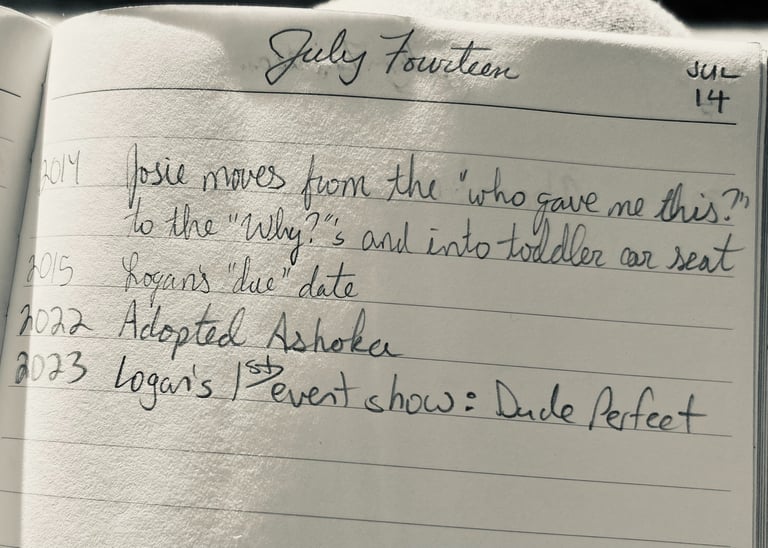 July Fourteen
JUL
14
2014 Josie moves from the "who gave me this?"
to the "Why?"s and into toddler car seat
2015 Logan's "due" date
2022 Adopted Ashoka
2023 Logan's 1st event show: Dude Perfect